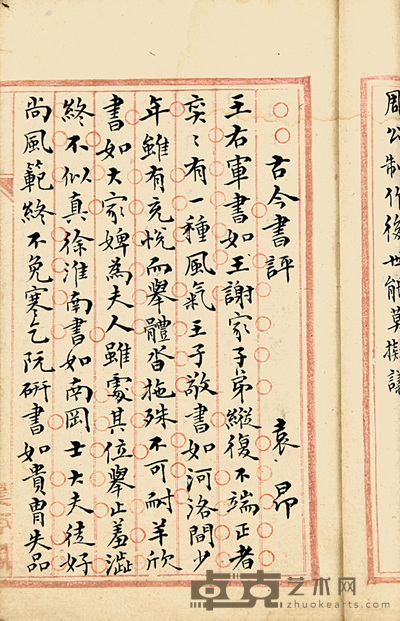 周公制作後世能莫擬議
古今書評 袁昂
王右軍書如王謝家子弟縱復不端正者
奕〻有一種風氣王子敬書如河洛間少
年雖有充悅而舉體沓拖殊不可耐羊欣
書如大家婢為夫人雖處其位舉止羞澁
終不似真徐淮南書如南岡士大夫徒好
尚風範終不免寒乞阮研書如貴冑失品
卓克艺术网
zhuokearts.com